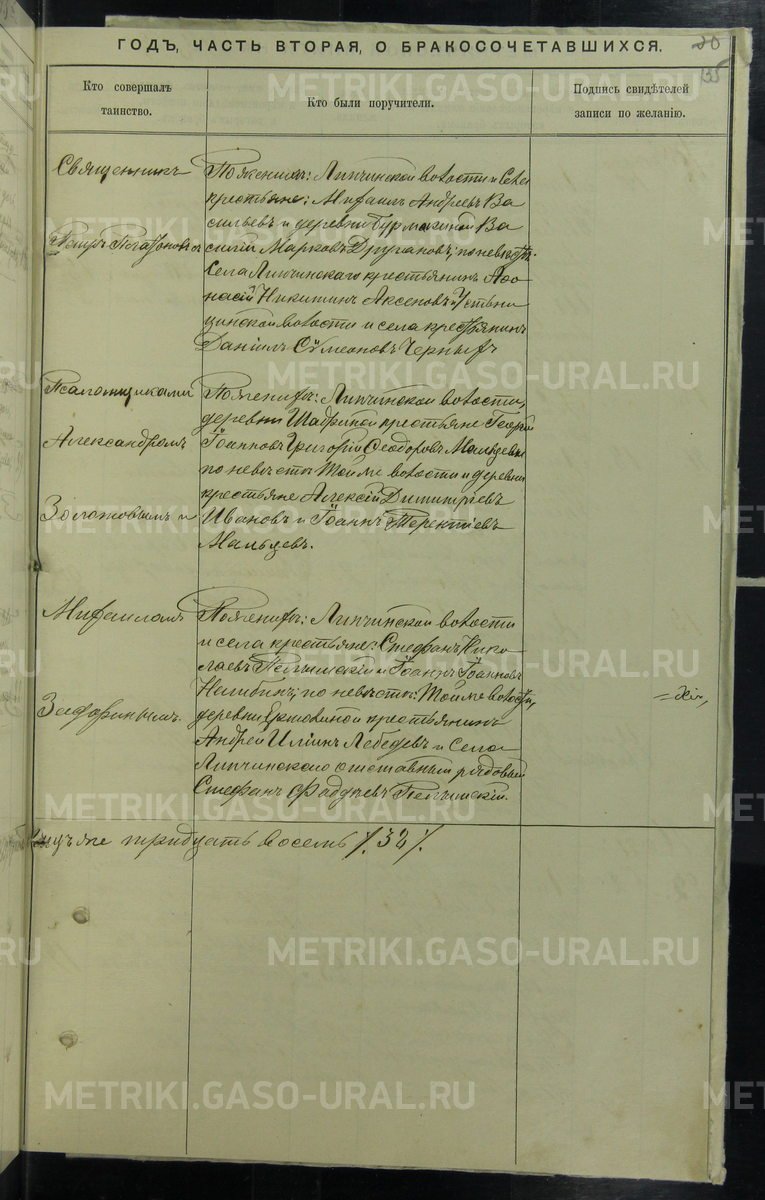 ГОДЪ, ЧАСТЬ ВТОРАЯ, О БРАКОСОЧЕТАВШИХСЯ.
20
135
Кто совершалъ
таинство.
Кто были поручители.
Подпись свидѣтелей
записи по желанію.
Священникъ
Петръ
Псаломщиками
Александромъ
Золотовымъ и
Михаиломъ
Зефиринымъ
По женихѣ: Липчинской волости и села
крестьяне: Михаилъ Андреевъ Ва
сильевъ и деревни Бурмакиной Ва
силій Марковъ Дружановъ; по невѣстѣ:
Села Липчинскаго крестьянинъ Афо
насій Никитинъ Аксеновъ и Усть-Ни
цинской волости и села крестьянинъ
Даніилъ Сѷмеоновъ Черныхъ
По женихѣ: Липчинской волости,
деревни крестьяне Георгій
Іоанновъ Григорій Ѳеодоровъ Мальцевы
по невѣстѣ: Той же волости и деревни
крестьяне Алексій Димитріевъ
Ивановъ и Іоаннъ Терентіевъ
Мальцевъ.
По женихѣ: Липчинской волости
и села крестьяне: Стефанъ Нико
лаевъ Пелымскій и Іоаннъ Іоанновъ
по невѣстѣ: Той же волости,
деревни Ершовиной крестьянинъ
Андрей Иліинъ Лебедевъ и села
Липчинскаго отставный рядовый
Стефанъ Фаддѣевъ Пелымскій.
тридцать восемь /.38./
METRIKI.GASO-URAL.RU